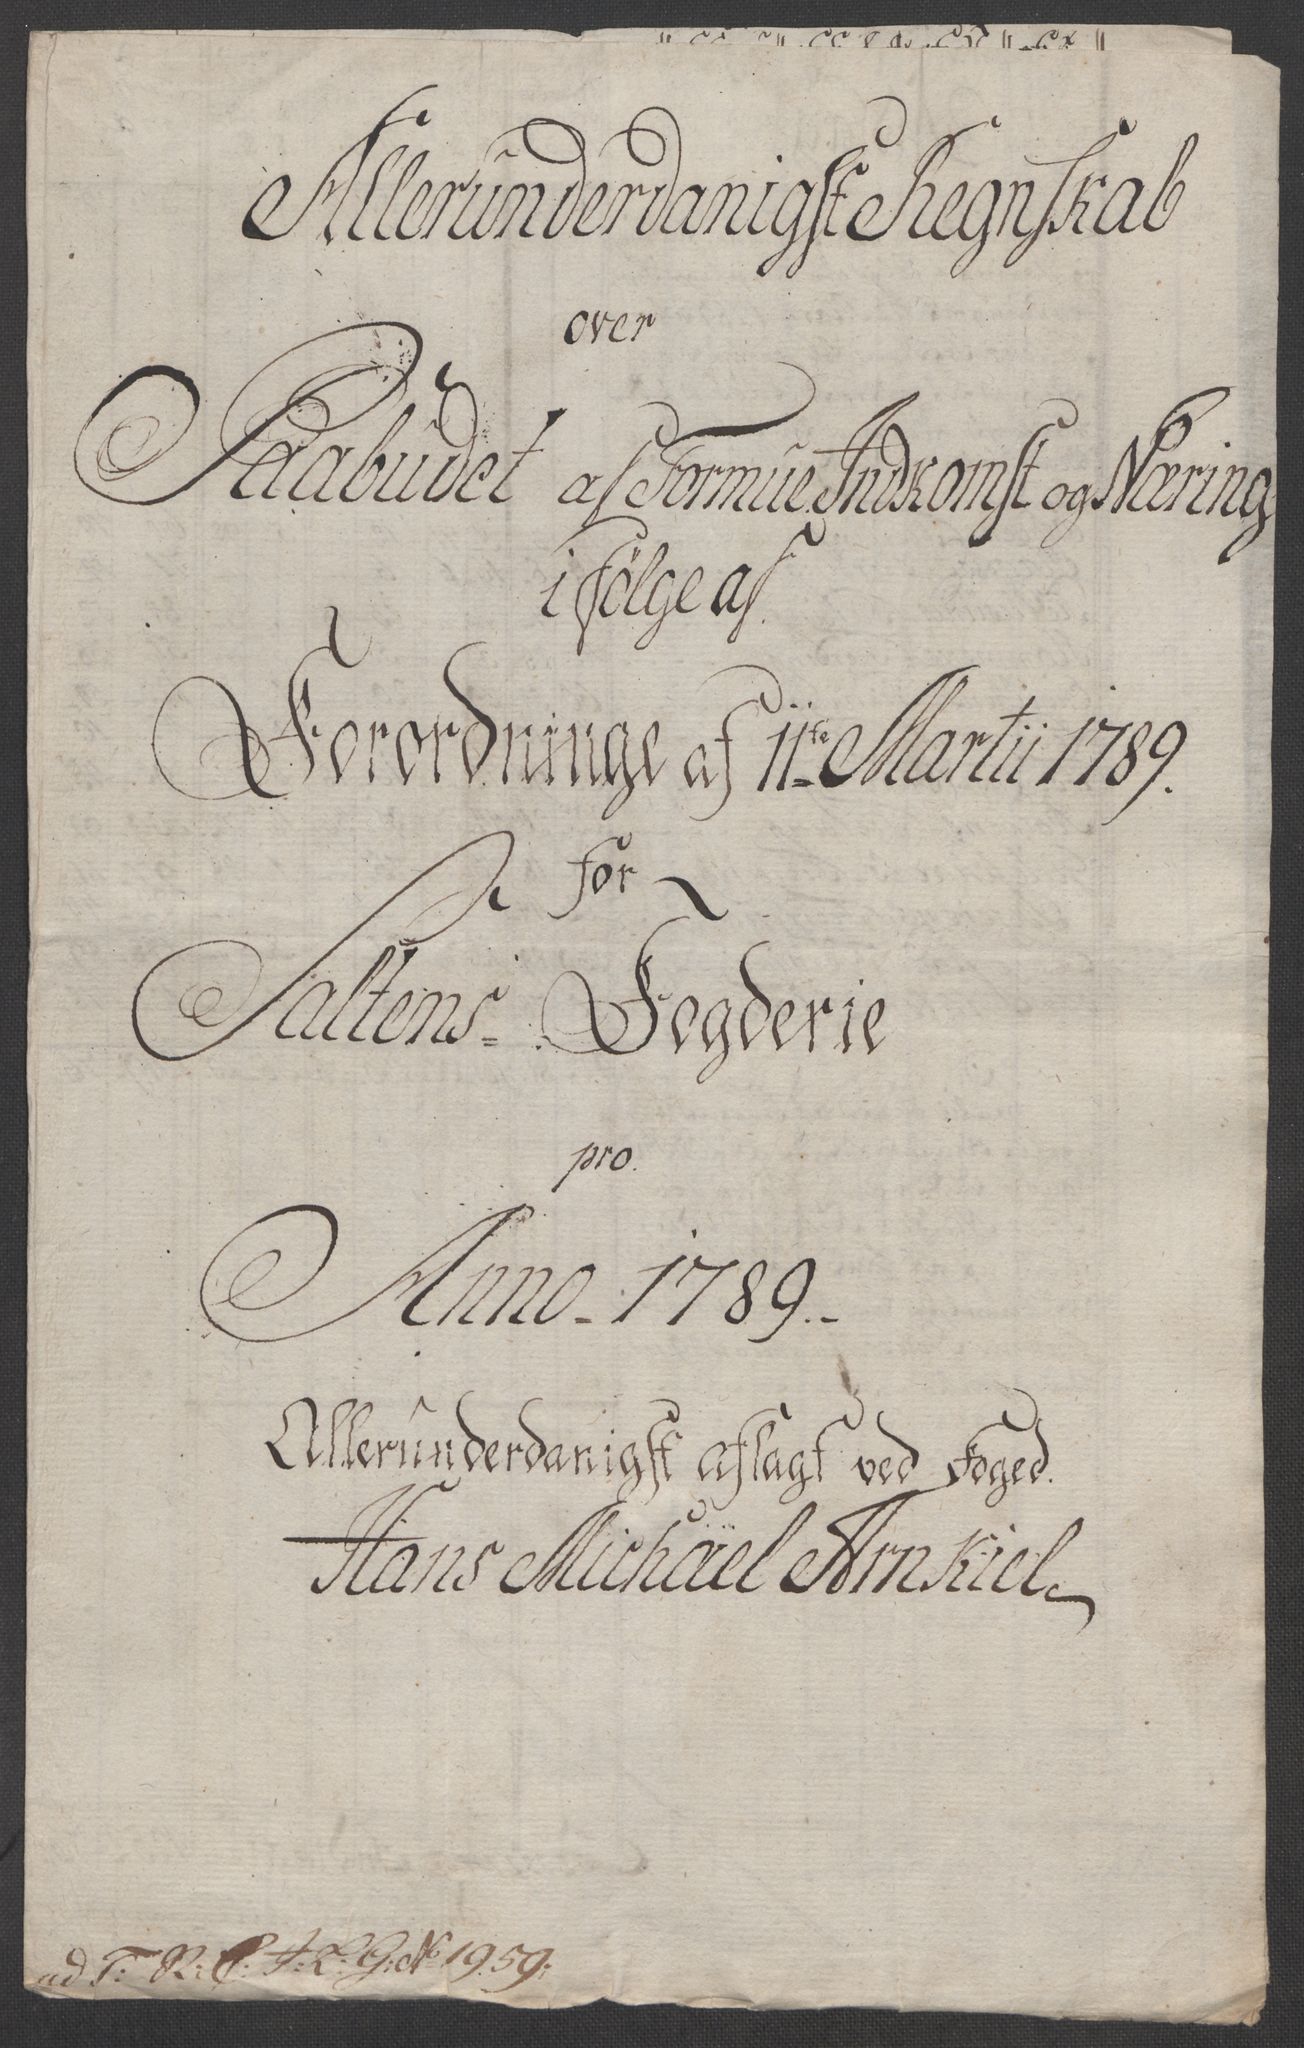 Allerunderdanigst Regnskab
over
Paabudet af Formue, Indkomst og Næring
i følge af
Forordninge af 11te Martii 1789.
for
Saltens Fogderie
pro.
Anno 1789.
Allerunderdanigst aflagt ved Foged.
Hans Michäel Arnkiel
ad T: R: C: F: L: G: No 1959: